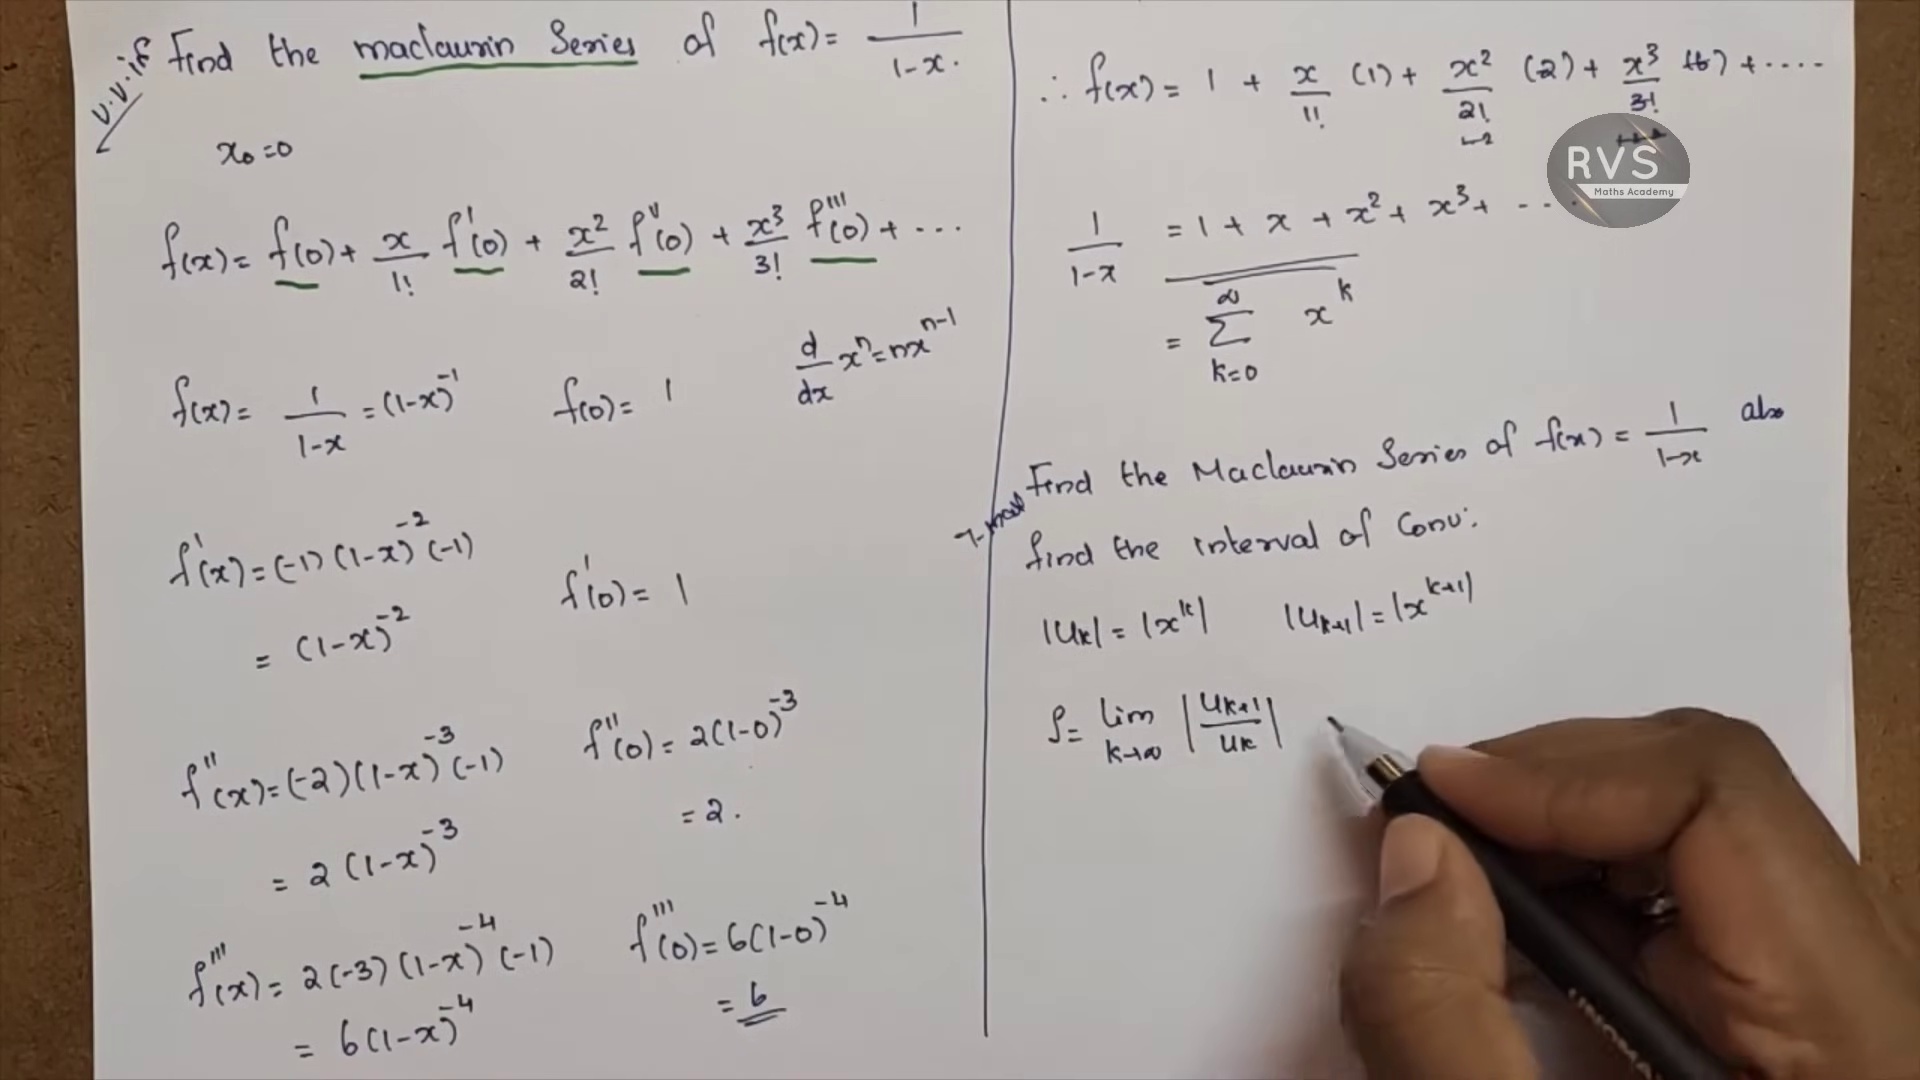 V.V.if
Find the maclaurin Series of f(x) = 1/(1-x).
x₀ = 0
f(x) = f(0) + x/1! f'(0) + x²/2! f''(0) + x³/3! f'''(0) + ...
d/dx xⁿ = nxⁿ⁻¹
f(x) = 1/(1-x) = (1-x)⁻¹ f(0) = 1
f'(x) = (-1)(1-x)⁻²(-1)
= (1-x)⁻² f'(0) = 1
f''(x) = (-2)(1-x)⁻³(-1) f''(0) = 2(1-0)⁻³
= 2(1-x)⁻³ = 2.
f'''(x) = 2(-3)(1-x)⁻⁴(-1) f'''(0) = 6(1-0)⁻⁴
= 6(1-x)⁻⁴ = 6
∴ f(x) = 1 + x/1! (1) + x²/2! (2) + x³/3! (6) + ....
RVS
Maths Academy
1/(1-x) = 1 + x + x² + x³ + ...
= ∑_{k=0}^{∞} x^k
Find the Maclaurin Series of f(x) = 1/(1-x) also
find the interval of Conv:
|u_k| = |x^k| |u_{k+1}| = |x^{k+1}|
ρ = lim_{k→∞} |u_{k+1}/u_k|